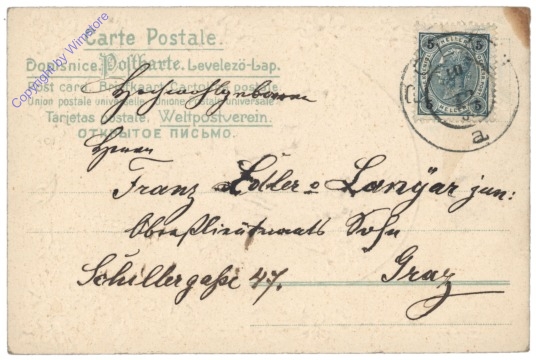 Carte Postale.
Dopisnice. Postkarte. Levelező-Lap.
Post card. Briefkaart. Cartolina postale.
Union postale universelle. Unione postale universale.
Tarjetas postale. Weltpostverein.
ОТКРЫТОЕ ПИСЬМО.
Copyright by Winstore
5 5
Herrn
Franz Edler v Lanÿar jun:
Oberstlieutenants Sohn
Schillergaße 47. Graz